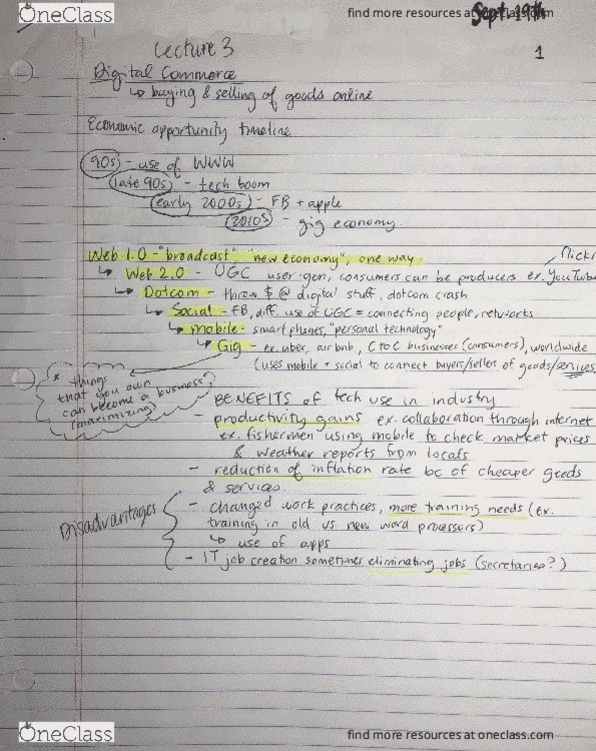 OneClass
find more resources at oneclass.com
Sept. 19th
1
Lecture 3
Digital Commerce
↳ buying & selling of goods online
Economic opportunity timeline
90s - use of WWW
late 90s - tech boom
early 2000s - FB + apple
2010s - gig economy.
Web 1.0 - "broadcast", "new economy", one way
Flickr
↳ Web 2.0 - UGC user-gen, consumers can be producers ex. YouTube
↳ Dotcom - throw $ @ digital stuff, dotcom crash
↳ Social - FB, diff. use of UGC = connecting people, networks
↳ mobile - smart phones, "personal technology"
↳ Gig - ex. uber, air bnb, C to C businesses (consumers), worldwide
(uses mobile + social to connect buyers/sellers of goods/services
* "things
that you own
can become a business"
(maximizing)
- BENEFITS of tech use in industry
- productivity gains ex. collaboration through internet
ex. fishermen using mobile to check market prices
& weather reports from locals
- reduction of inflation rate bc of cheaper goods
& services.
Disadvantages
- changed work practices, more training needs (ex.
training in old vs new word processors)
↳ use of apps
- IT job creation sometimes eliminating jobs (secretaries?)
OneClass
find more resources at oneclass.com